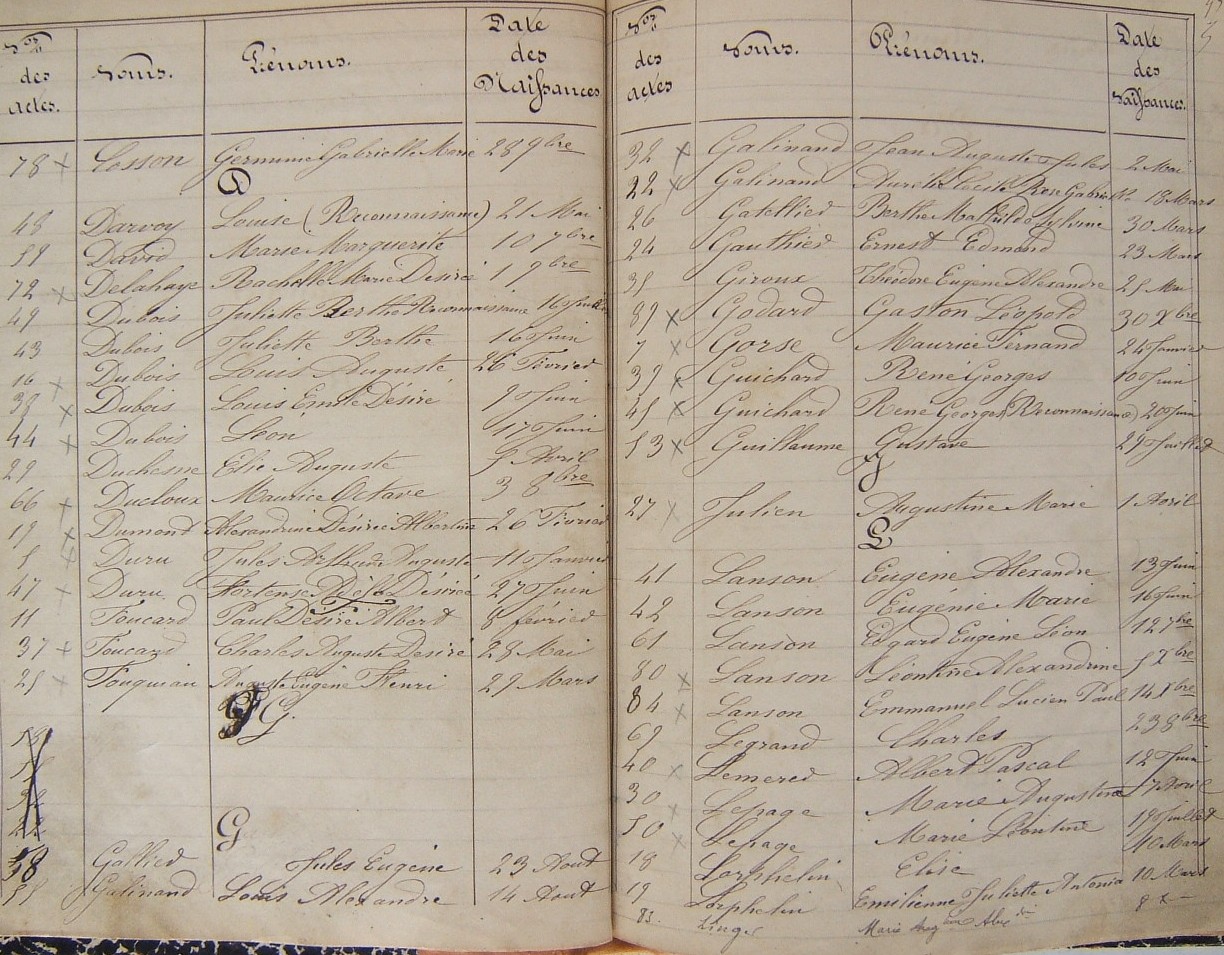 Nos des actes. Noms. Prénoms. Date des Naissances
78 x Cosson Germinie Gabrielle Marie 28 9bre
D
48 Darvoy Louise (Reconnaissance) 21 Mai
59 David Marie Marguerite 10 7bre
72 x Delahaye Rachelle Marie Desirée 1 9bre
49 Dubois Juliette Berthe Reconnaissance 16 Juillet
43 Dubois Juliette Berthe 16 Juin
16 x Dubois Louis Auguste 26 Février
38 x Dubois Louis Emile Désiré 9 Juin
44 x Dubois Léon 17 Juin
29 Duchesne Elie Auguste 5 Avril
66 x Ducloux Maurice Octave 3 8bre
17 x Dumont Alexandrine Désirée Albertine 26 Février
5 x Duru Jules Arthur Auguste 11 Janvier
47 x Duru Hortense Adèle Désirée 27 Juin
F
11 Foucard Paul Désiré Albert 8 février
37 x Foucard Charles Auguste Desiré 28 Mai
25 x Fouquiau Auguste Eugène Henri 29 Mars
G.
G
58 Gallied Jules Eugène 23 Aout
55 Galinand Louis Alexandre 14 Aout
Nos des actes Noms. Prénoms. Date des Naissances.
32 x Galinand Jean Auguste Jules 2 Mai
22 x Galinand Aurélie Cécile Rose Gabrielle 18 Mars
26 Gatellied Berthe Mathilde Sylvine 30 Mars
24 Gauthied Ernest Edmond 23 Mars
35 Giroux Théodore Eugène Alexandre 25 Mai
89 x Godard Gaston Léopold 30 Xbre
7 x Gorse Maurice Fernand 24 Janvier
39 x Guichard René Georges 10 Juin
45 x Guichard René Georges (Reconnaissance) 20 Juin
53 x Guillaume Gustave 29 Juillet
J
27 x Julien Augustine Marie 1 Avril
L
41 Lanson Eugène Alexandre 13 Juin
42 Lanson Eugénie Marie 16 Juin
61 Lanson Edgard Eugène Léon 12 7bre
80 x Lanson Léontine Alexandrine 5 Xbre
84 x Lanson Emmanuel Lucien Paul 14 Xbre
69 Legrand Charles 23 8bre
40 x Lemered Albert Pascal 12 Juin
30 x Lepage Marie Augustine 17 Avril
50 x Lepage Marie Léontine 19 Juillet
18 Lorphelin Elise 10 Mars
19 Lorphelin Emilienne Juliette Antonia 10 Mars
83. Linge Marie 8 x